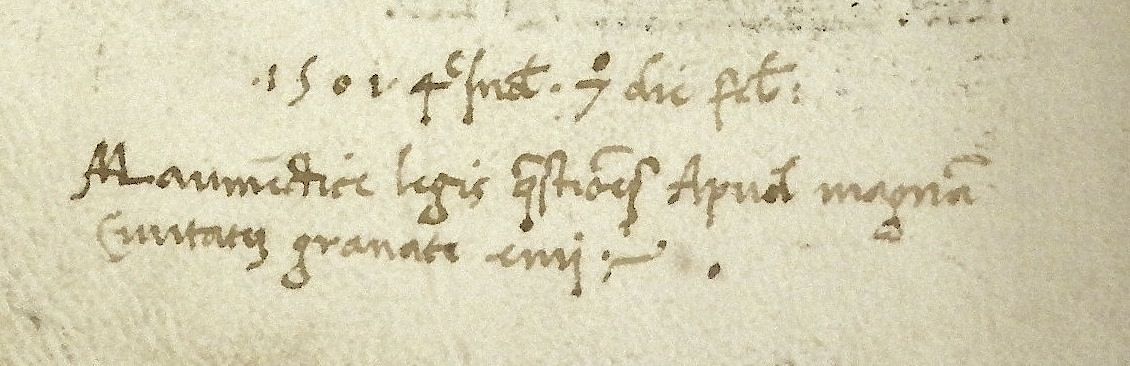 ·1501· 4ᵉ Ind̄. 7º die feb̄:
Maumēctice legis q̄stiōēs Apud magnā
Ciuitatē granate emi :~ .